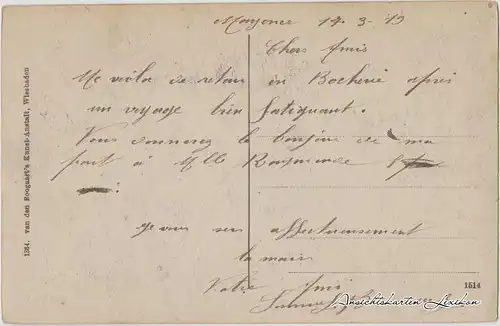 Mayence 14-3-19
Chers Amis
Me voila de retour en Bocherie après
un voyage bien fatiguant.
Vous donnerez le bonjour de ma
part à Mlle Raymonde
je vous serre affectueusement
la main
Votre Ami
1264. van den Boogaart's Kunst-Anstalt, Wiesbaden
1514
Ansichtskarten-Lexikon